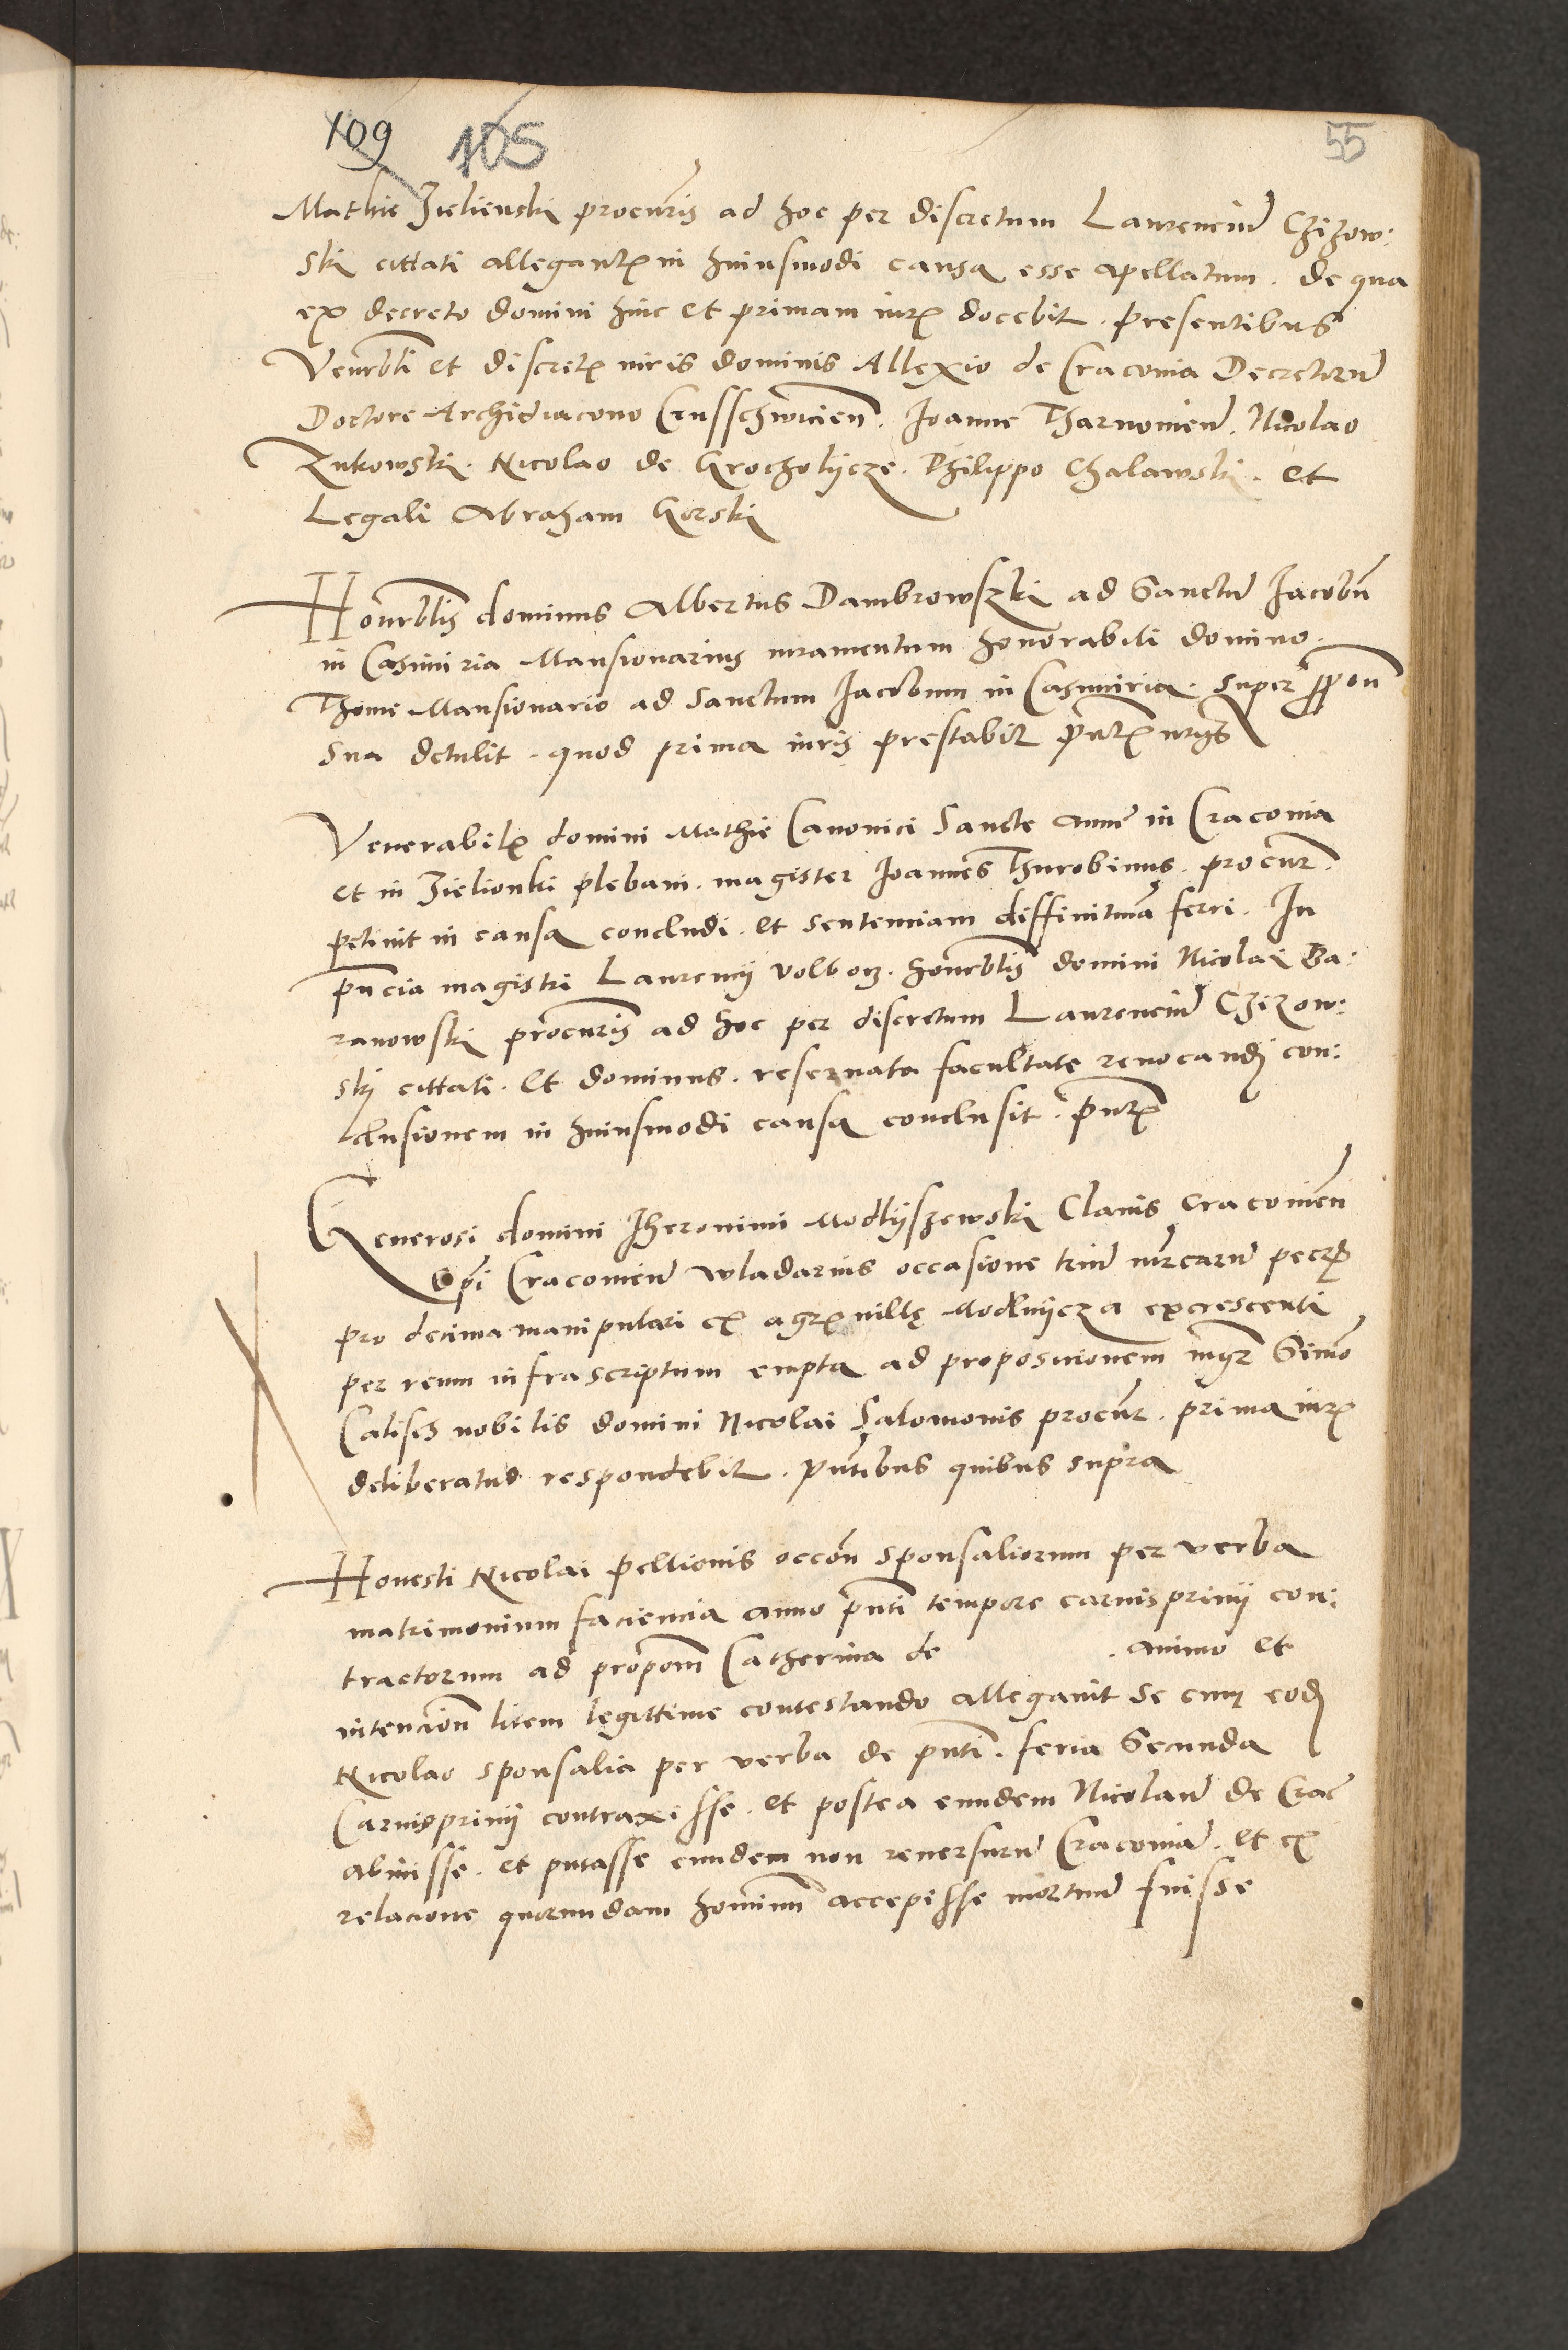 109 105 55
Mathie Zielienski procuris ad hoc per discretum Laurenciu Czizow:
ski cittati allegant in huiusmodi causa esse apellatum. de qua
ex decreto domini hinc et primam iuris docebit. presentibus
Venrbli et discret viris dominis Allexio de Cracovia Decretoru
Doctore Archidiacono Crusschwicien. Joanne Tharnovien. Nicolao
Zukowski. Nicolao de Grocholijcze. Philippo Chalawski. et
Legali Abraham Gorski
Honrblis dominus Albertus Dambrowszki ad Sanctu Jacobu
in Casimiria Mansionarius iuramentum honorabili domino
Thome Mansionario ad Sanctum Jacobum in Casimiria. super ppon
sua detulit. quod prima iuris prestabit pnt
Venerabil domini Mathie Canonici Sancte Anne in Cracovia
et in Zielionki plebani. magister Joannes Thurobinus. procur.
petivit in causa concludi. et sentenciam diffinitiva ferri. In
pncia magistri Laurencij volborz. honrblis domini Nicolai Ba:
ranowski procuris ad hoc per discretum Laurenciu Czizow:
ski cittati. et dominus. reservata facultate revocandi con:
clusionem in huiusmodi causa conclusit. pnt
Generosi domini Jheronimi Modlijszewski Clavis Cracovien
Epi Cracovien wladarius occasione triu mrcaru pecr
pro decima manipulari ex agris ville Modlnijcza excrescenti
per reum infrascriptum empta ad proposicionem mgr Simo
Calisch nobilis domini Nicolai Salomonis procur. prima iuris
deliberatus respondebit. pntibus quibus supra
Honesti Nicolai Pellionis occon sponsaliorum per verba
matrimonium faciencia anno pnti tempore carnisprivij con:
tractorum ad propom Catherina de . animo et
intencion litem legittime contestando allegavit se cum eod
Nicolao sponsalia per verba de pnti. feria Secunda
Carnisprivij contraxisse. et postea eundem Nicolau de Crac
abiisse. et putasse eundem non reversuru Cracovia. et ex
relacione quorundam hominu accepisse mortuu fuisse